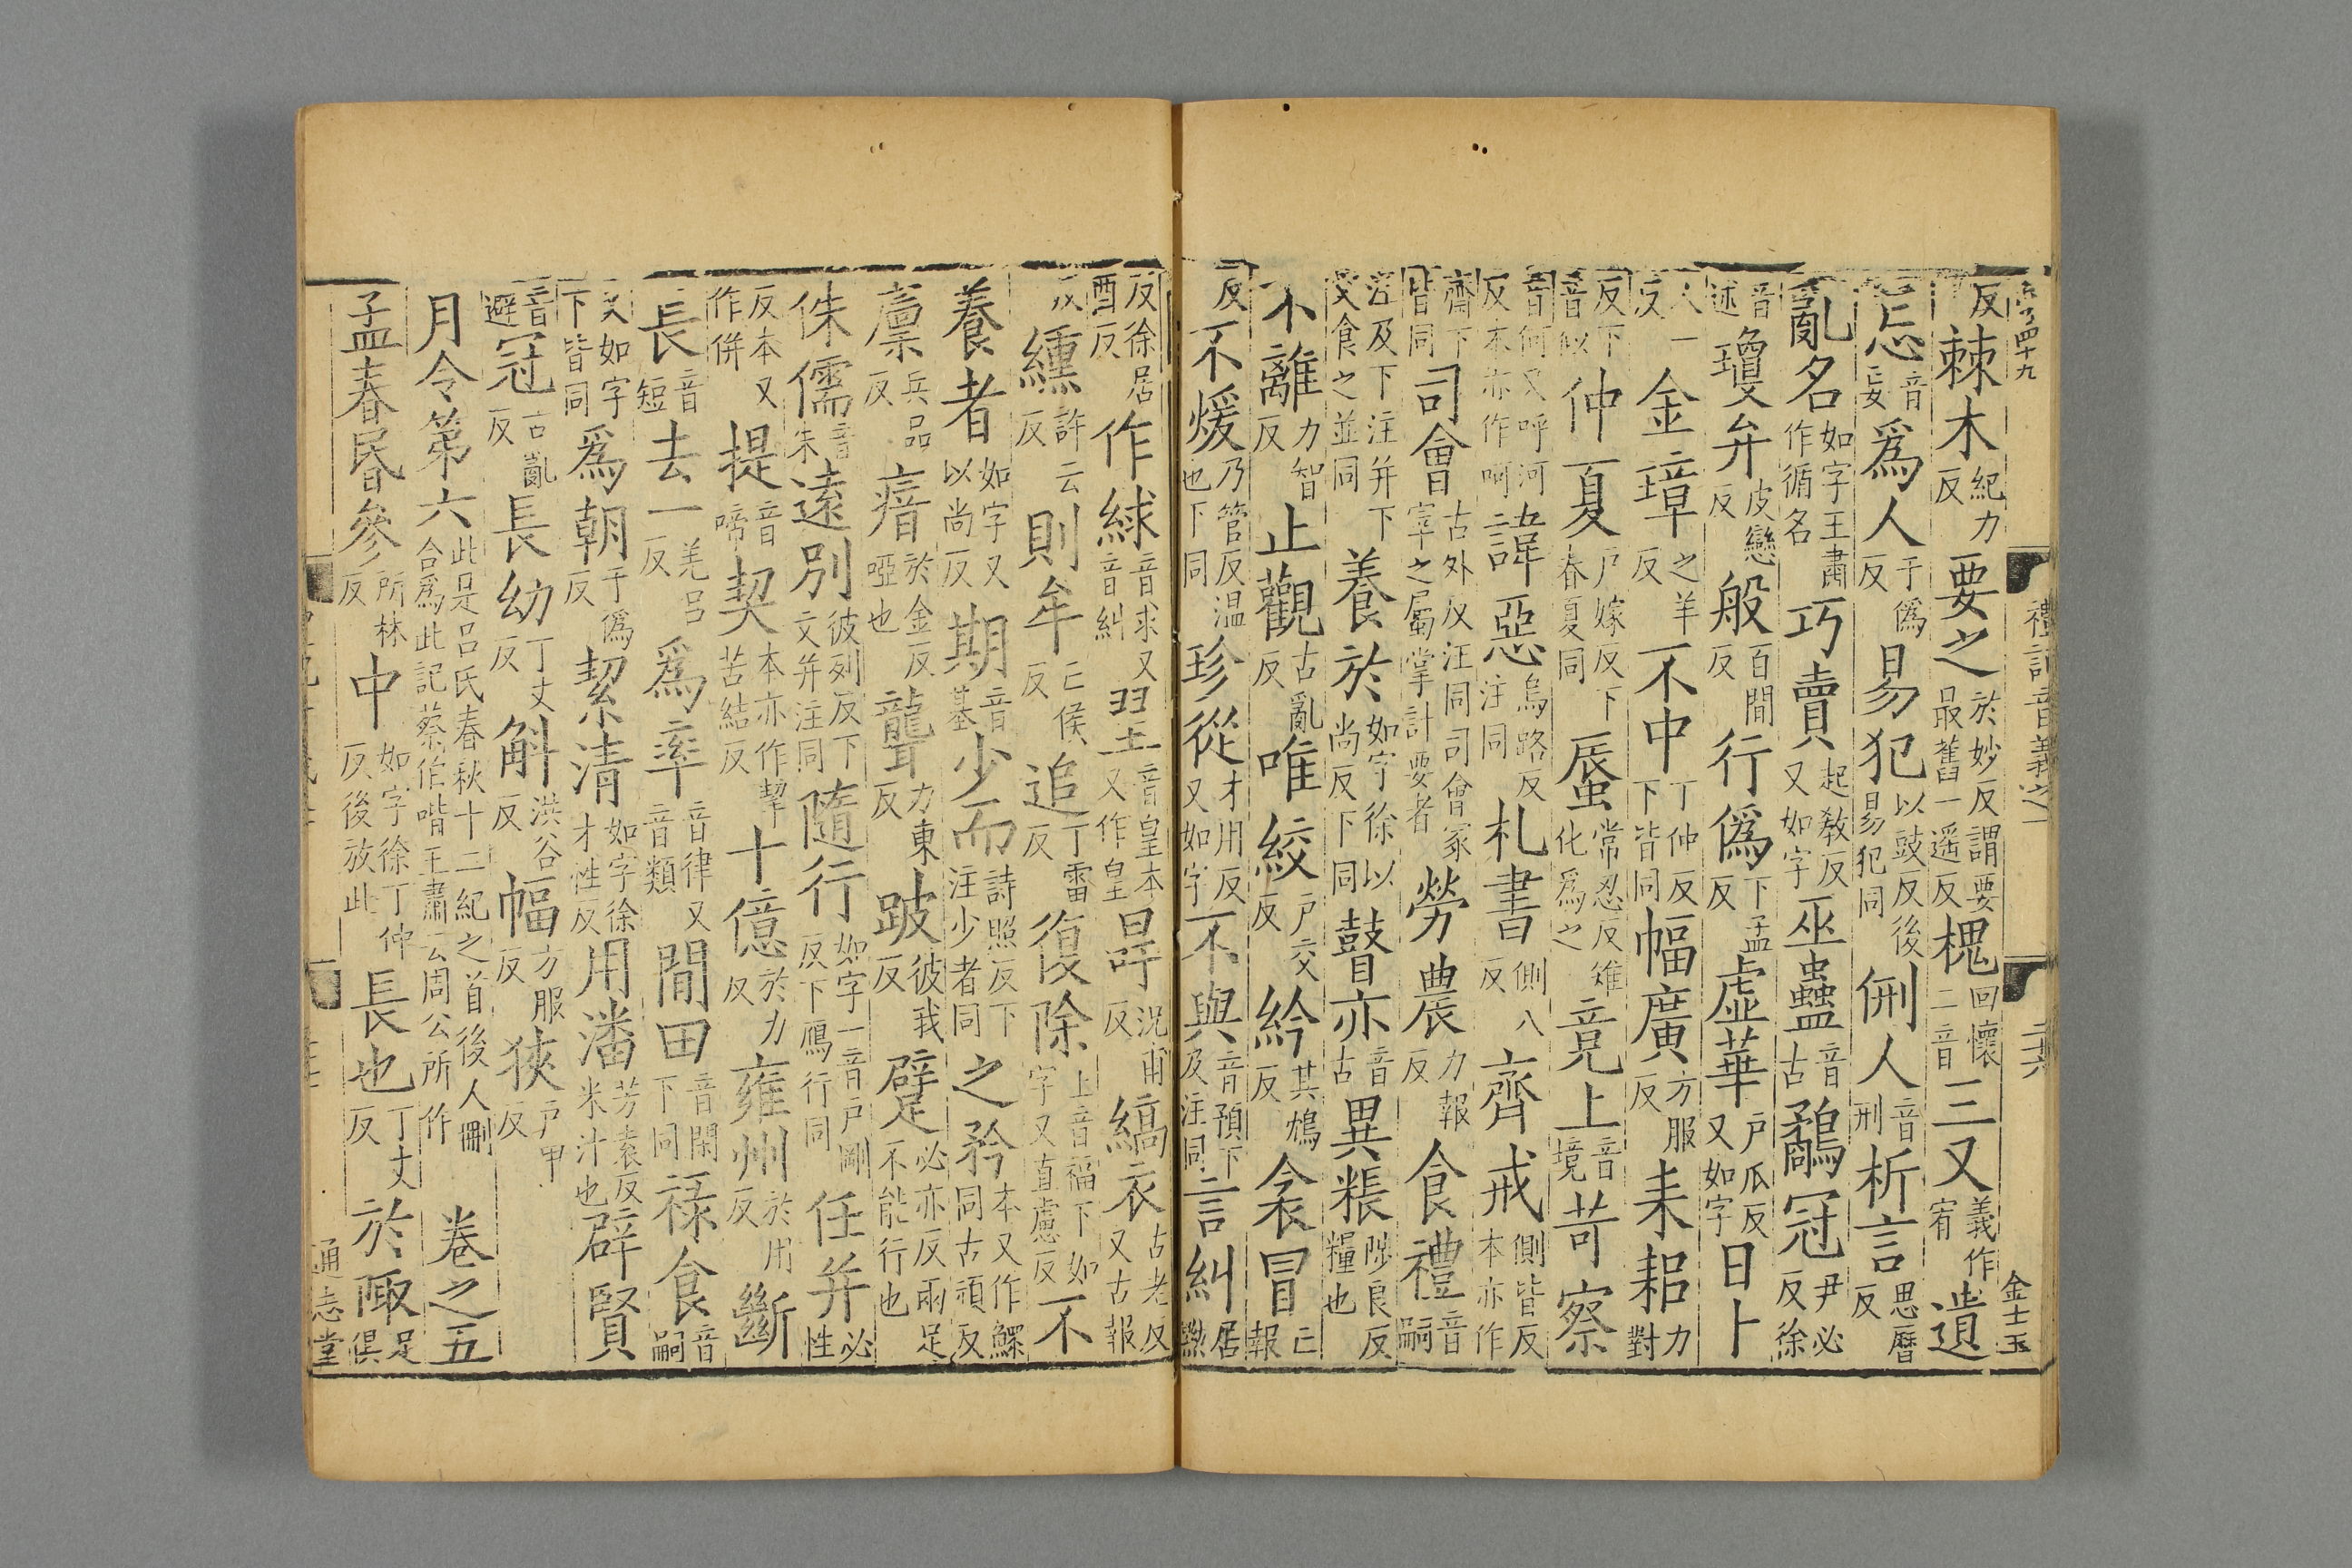 反棘木紀力反要之於妙反謂要最舊一遥反槐回懷二音三又義作宥遺
忘音妄爲人于僞反易犯以豉反後易犯同侀人音刑析言思曆反
亂名如字王肅作循名巧賣起教反又如字巫蠱音古鷸冠尹必反徐
音述瓊弁皮戀反般百間反行僞下孟反虚華戶瓜反又如字日卜
人一反金璋之羊反不中丁仲反下皆同幅廣方服反耒耜力對
反下音似仲夏戶嫁反下春夏同蜃常忍反雉化爲之竟上音境苛察
音何又呼河反本亦作呵諱惡烏路反注同札書側八反齊戒側皆反本亦作
齋下皆同司會古外反注同司會冢宰之屬掌計要者勞農力報反食禮音嗣
注及下注并下文食之並同養於如字徐以尚反下同瞽亦音古異粻陟良反糧也
不離力智反止觀古亂反唯絞戶交反紟其鴆反衾冒亡報
反不煖乃管反温也下同珍從才用反又如字不與音預下及注同言糾居黝
反徐居酉反作綠音求又音糾瑝音皇本又作皇冔況甫反縞衣古老反又古報
反纁許云反則牟亡侯反追丁雷反復除上音福下如字又直慮反不
養者如字又以尚反期音基少而詩照反下注少者同之矜本又作鰥同古頑反
禀兵品反瘖於金反啞也聾力東反跛彼我反躄必亦反兩足不能行也
侏儒音朱遠別彼列反下文并注同隨行如字一音戶剛反下鴈行同任并必性
反本又作併提音啼契本亦作挈苦結反十億於力反雍州於用反斷
長音短去一羌呂反爲率音律又音類閒田音閑下同禄食音嗣
又如字下皆同爲朝于僞反絜清如字徐才性反用潘芳袁反米汁也辟賢
音避冠古亂反長幼丁丈反斛洪谷反幅方服反狹戶甲反
月令第六此是呂氏春秋十二紀之首後人刪合爲此記蔡伯喈王肅云周公所作卷之五
孟春昬參所林反中如字徐丁仲反後放此長也丁丈反於陬足俱
禮記音義之一
金士玉
通志堂